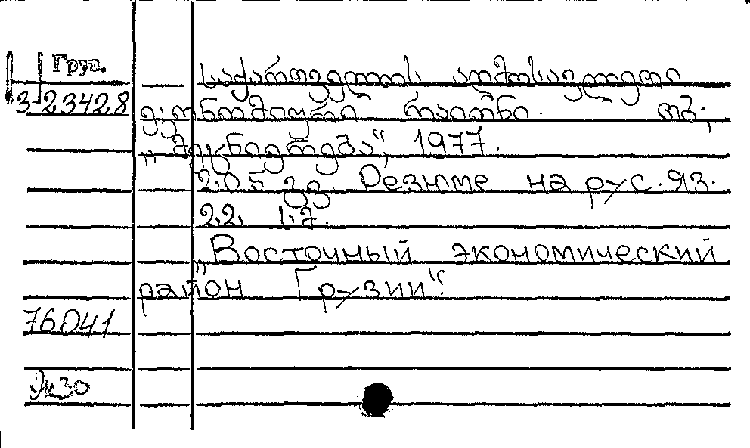 Груз.
3-23428
საქართველოს აღმოსავლეთი
ეკონომიური რაიონი. თბ.,
„მეცნიერება“, 1977.
205 გვ. Резюме на рус. яз.
22. 1.7.
„Восточный экономический
район Грузии“.
76041
Эк30